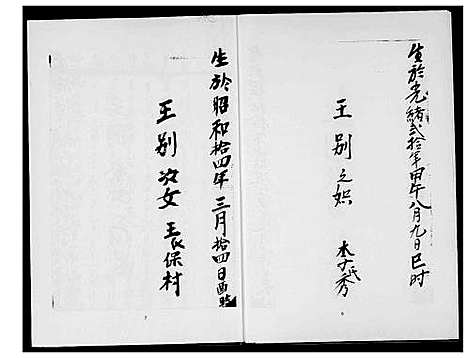 生於光緒弍拾年甲午八月九日巳時
王別之妣
李氏秀
生於昭和拾四年三月拾四日酉時
王別次女
王氏保村